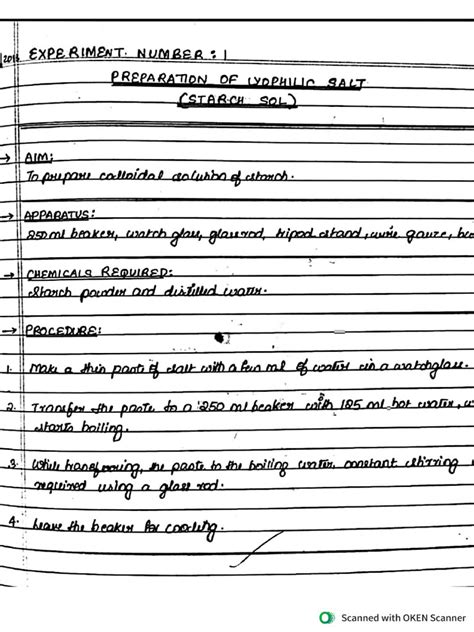 2016 EXPERIMENT. NUMBER: 1
PREPARATION OF LYOPHILIC SALT
(STARCH SOL)
→ AIM:
To prepare colloidal solution of starch.
→ APPARATUS:
250 ml beaker, watch glass, glass rod, tripod stand, wire gauze, bu
→ CHEMICALS REQUIRED:
Starch powder and distilled water.
→ PROCEDURE:
1. Make a thin paste of salt with a few ml of water in a watchglass.
2. Transfer the paste to a 250 ml beaker with 125 ml hot water, u
starts boiling.
3. While transferring, the paste to the boiling water, constant stirring
required using a glass rod.
4. Leave the beaker for cooling.
Scanned with OKEN Scanner